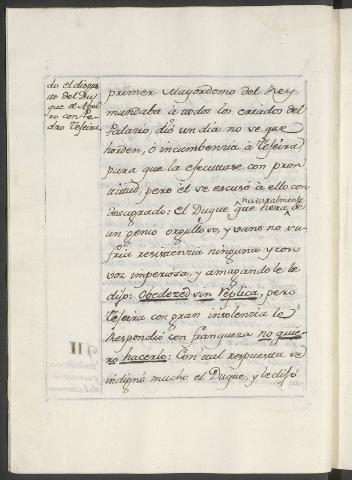 do el disgus
to del Du
que de Albu
ro con Pe
dro Teseira
primer Mayordomo del Rey
mandaba à todos los criados del
Palacio, dió un dia no se que
horden, ó incumbenzia à Teseira
para que la ejecuttase con pron
titud, pero èl se escusó à ello con
desagrado: el Duque que naturalmente hera de
un genio orgulloso, y vano no su
fria resistenzia ninguna y con
voz imperiosa, y amagandole le
dijo: Obedezed sin réplica, pero
Teseira con gran insolenzia le
Respondió con franqueza no quie-
ro hacerlo: Con tal respuesta se
indignó mucho el Duque, y le dijó